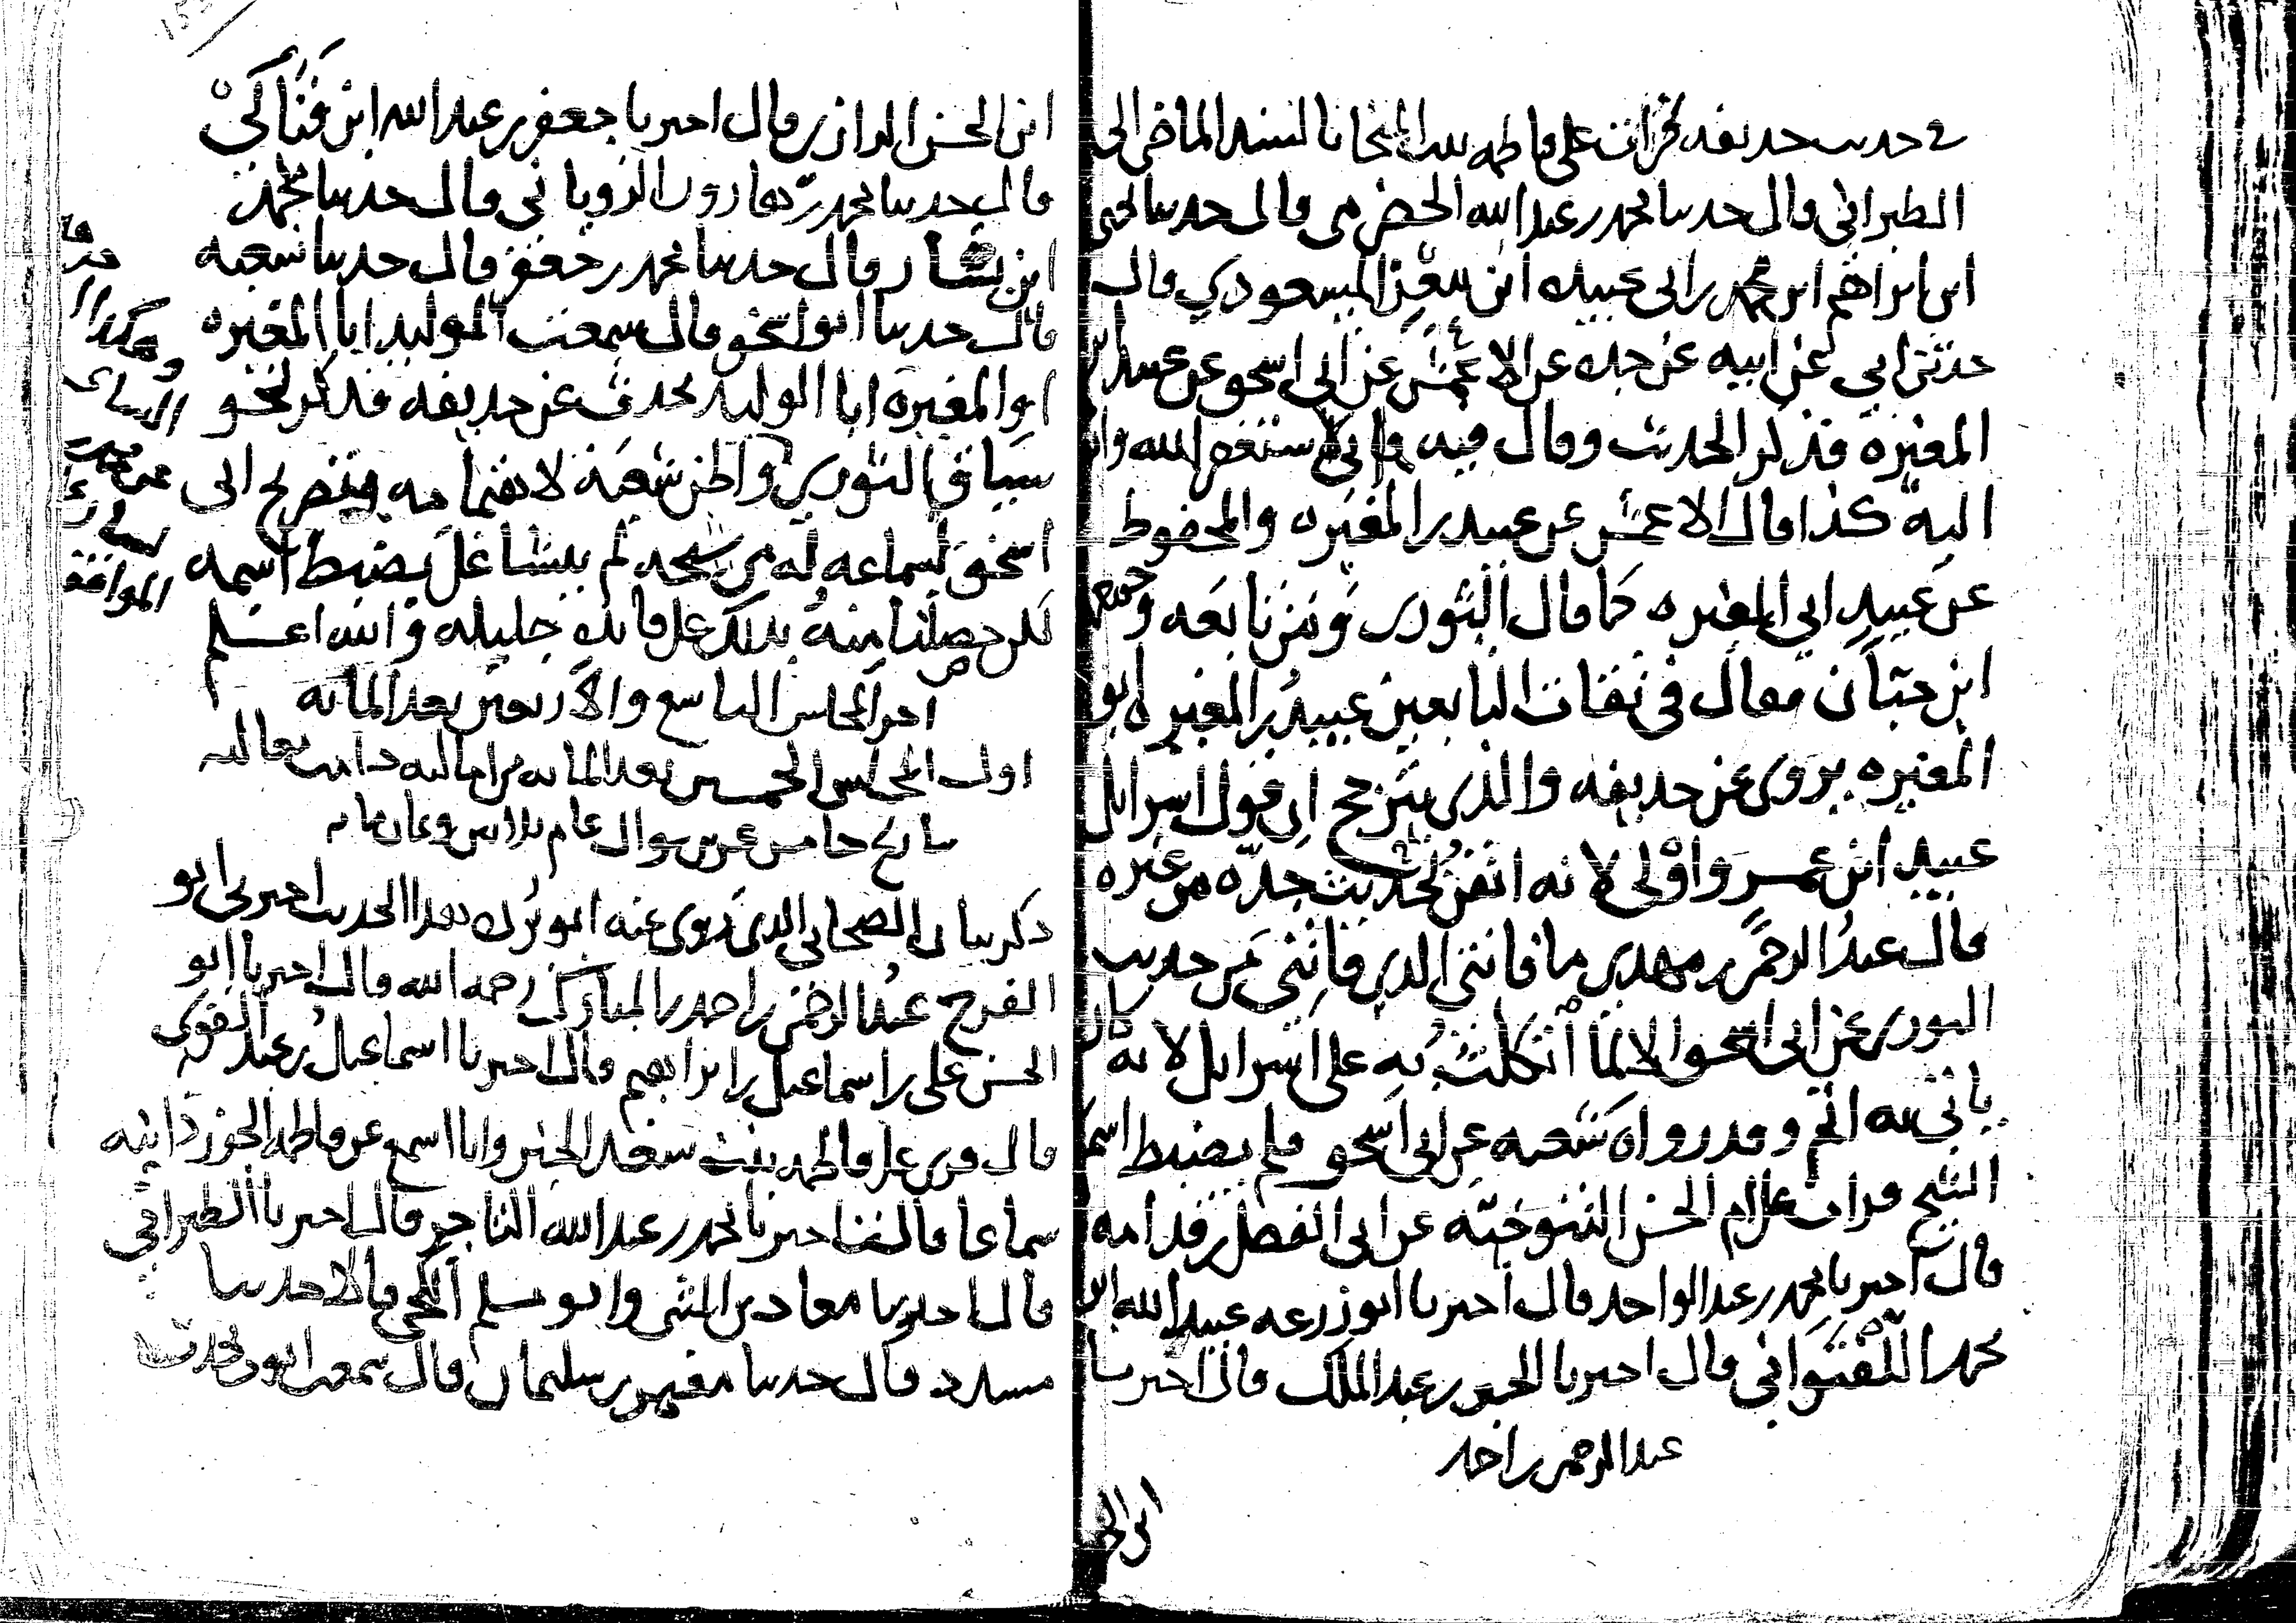 في حديث حذيفة قرأت على فاطمة بنت المنجا بالسند الماضي إلى
الطبراني قال حدثنا محمد بن عبد الله الحضرمي قال حدثنا يحيى
ابن إبراهيم ابن محمد بن أبي عبيدة ابن معن المسعودي قال
حدثني أبي عن أبيه عن جده عن الأعمش عن أبي إسحق عن عبيد بن
المغيرة فذكر الحديث وقال فيه وإني لأستغفر الله وأتوب
إليه كذا قال الأعمش عن عبيد بن المغيرة والمحفوظ
عن عبيد أبي المغيرة كما قال الثوري ومن تابعه
ابن حبان فقال في ثقات التابعين عبيد بن المغيرة أبو
المغيرة يروي عن حذيفة والذي يترجح أن قول إسرائيل
عبيد ابن عمرو أولى لأنه أتقن لحديث جده من غيره
قال عبد الرحمن بن مهدي ما فاتني الذي فاتني من حديث
الثوري عن أبي إسحق إلا لما اتكلت به على إسرائيل لأنه كان
يأتي به أتم وقد رواه شعبة عن أبي إسحق فلم يضبط اسم
الشيخ قرأت على أم الحسن التنوخية عن أبي الفضل بن قدامة
قال أخبرنا محمد بن عبد الواحد قال أخبرنا أبو زرعة عبيد الله ابن
محمد اللفتواني قال أخبرنا الحسين بن عبد الملك قال أخبرنا
عبد الرحمن بن أحمد
ابن الحسن الرازي قال أخبرنا جعفر بن عبد الله ابن فناكي
قال حدثنا محمد بن هارون الروياني قال حدثنا محمد
ابن بشار قال حدثنا محمد بن جعفر قال حدثنا شعبة
قال حدثنا أبو إسحق قال سمعت الوليد أبا المغيرة
أو المغيرة أبا الوليد يحدث عن حذيفة فذكر نحو
سياق الثوري وأظن شعبة لاهتمامه بتصريح أبي
إسحق بسماعه له من شيخه لم يتشاغل بضبط اسمه
لكن حصلنا منه بذلك على فائدة جليلة والله أعلم
آخر المجلس التاسع والأربعين بعد المائة
أول المجلس الخمسين بعد المائة من أماليه دامت معاليه
بتاريخ خامس عشرين شوال عام ثلاثين وثمان مائة
ذكر بيان الصحابي الذي روى عنه أبو بردة هذا الحديث أخبرني أبو
الفرج عبد الرحمن بن أحمد بن المبارك رحمه الله قال أخبرنا أبو
الحسن علي بن إسماعيل بن إبراهيم قال أخبرنا إسماعيل بن عبد القوي
قال قرئ على فاطمة بنت سعد الخير وأنا أسمع عن فاطمة الجوزدانية
سماعا قالت أخبرنا محمد بن عبد الله التاجر قال أخبرنا الطبراني
قال حدثنا معاذ بن المثنى وأبو مسلم الكجي قالا حدثنا
مسدد قال حدثنا معتمر بن سليمان قال سمعت أبي يحدث
وهكذا
النسائي
الموافقة